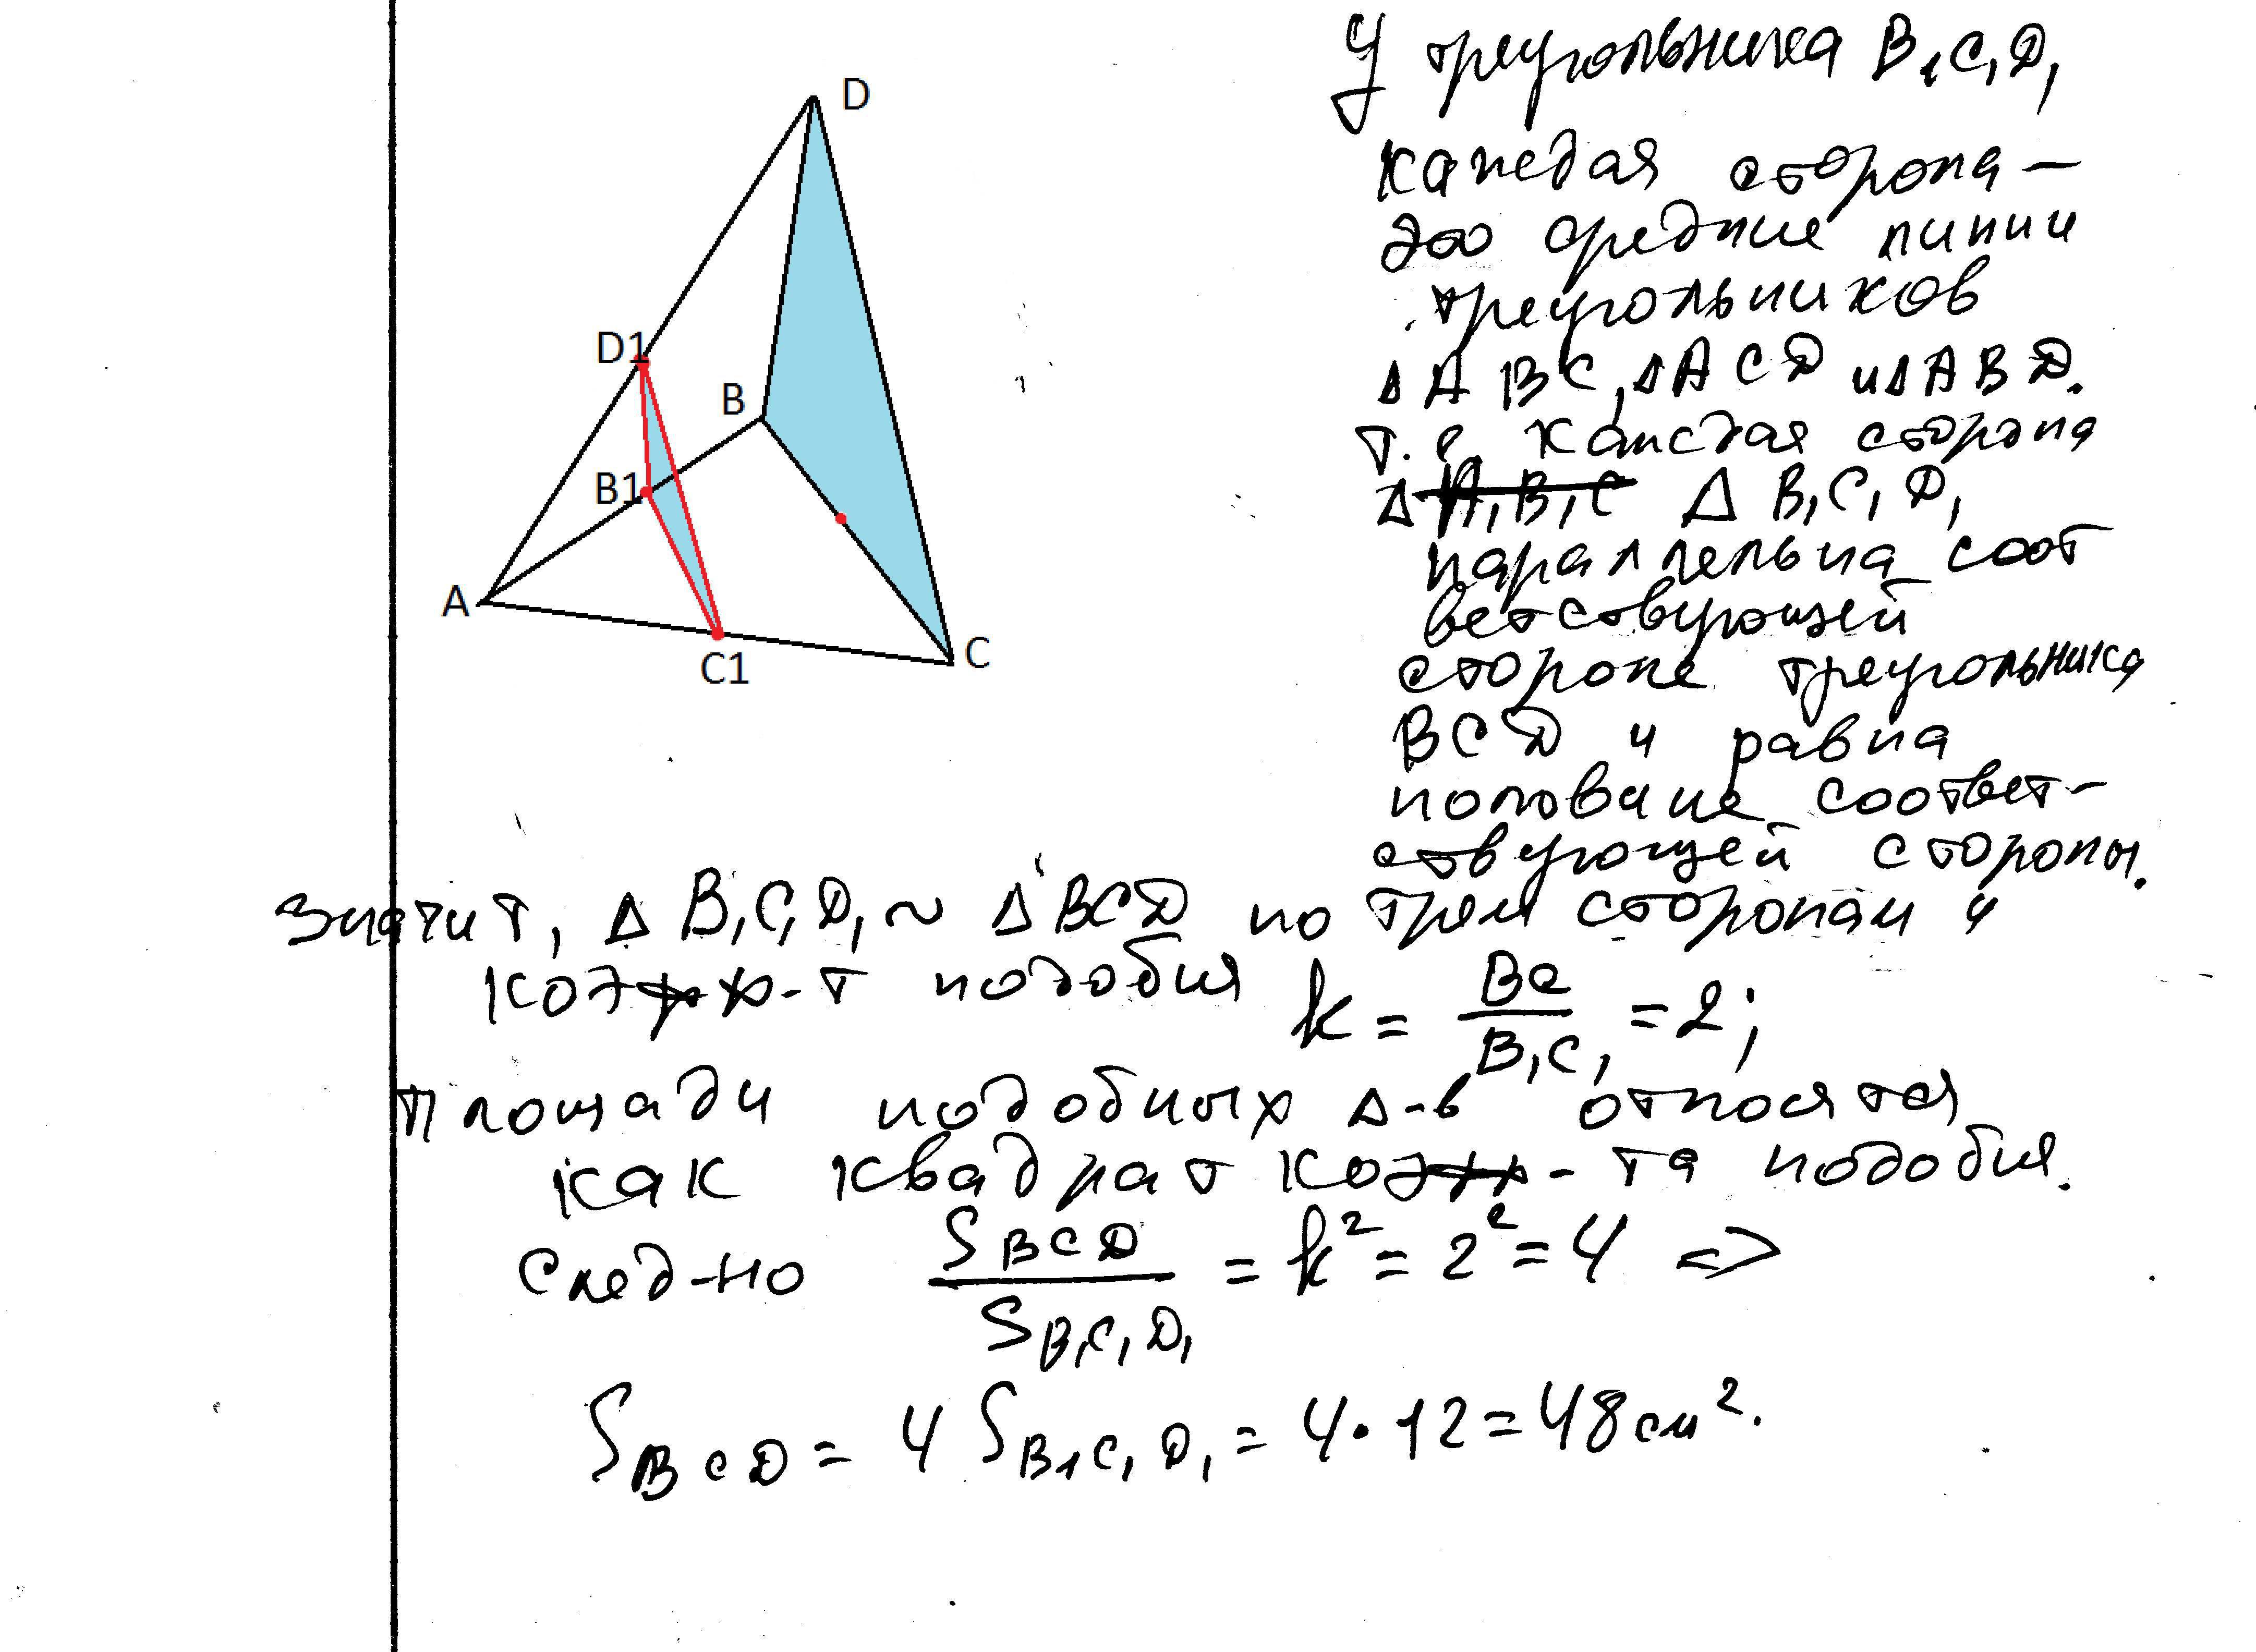 D
D1
B
B1
A
C1
C
У треугольника B₁C₁D₁
каждая сторона –
это средние линии
треугольников
Δ ABC, Δ ACD и Δ ABD.
т.е. каждая сторона
Δ A₁B₁C Δ B₁C₁D₁
параллельна соот
ветствующей
стороне треугольника
BCD и равна
половине соответ-
ствующей стороны.
Значит, Δ B₁C₁D₁ ~ Δ BCD по трем сторонам и
коэфф-т подобия k = BC / B₁C₁ = 2;
Площади подобных Δ-в относятся
как квадрат коэфф-та подобия.
След-но S BCD / S B₁C₁D₁ = k² = 2² = 4 =>
S BCD = 4 S B₁C₁D₁ = 4 · 12 = 48 см².